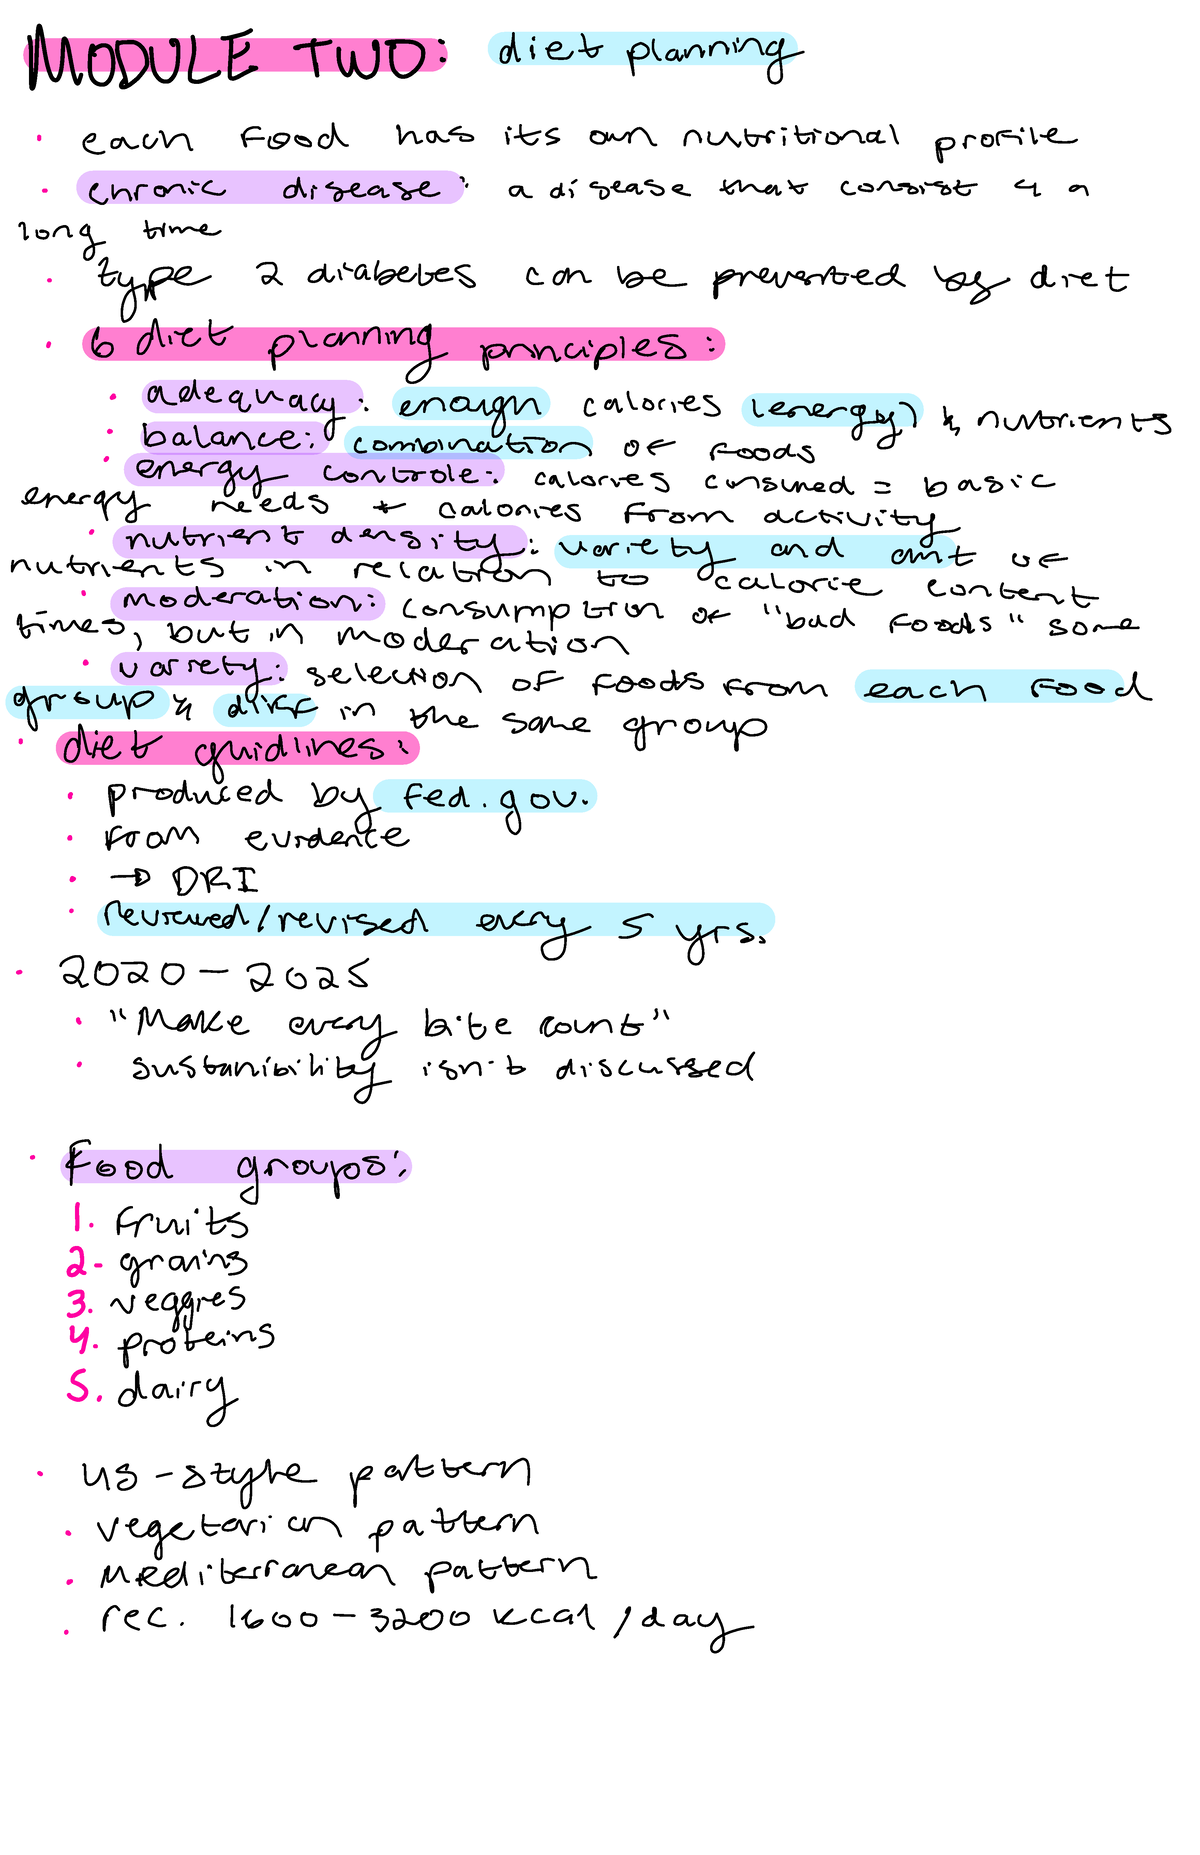 MODULE TWO: diet planning
· each food has its own nutritional profile
· chronic disease: a disease that consist 4 a
long time
· type 2 diabetes can be prevented by diet
· 6 diet planning principles:
· adequacy: enough calories (energy) & nutrients
· balance: combination of foods
· energy controle: calories consumed = basic
energy needs + calories from activity
· nutrient density: variety and amt of
nutrients in relation to calorie content
· moderation: consumption of "bad foods" some
times, but in moderation
· variety: selection of foods from each food
group & diff in the same group
· diet guidlines:
· produced by fed. gov.
· from evidence
· → DRI
· Reviewed/revised every 5 yrs.
· 2020-2025
· "Make every bite count"
· sustanibility isn't discussed
· Food groups:
1. fruits
2- grains
3. veggies
4. proteins
5. dairy
· US-style pattern
· vegetarian pattern
· Mediterranean pattern
· rec. 1600-3200 kcal/day